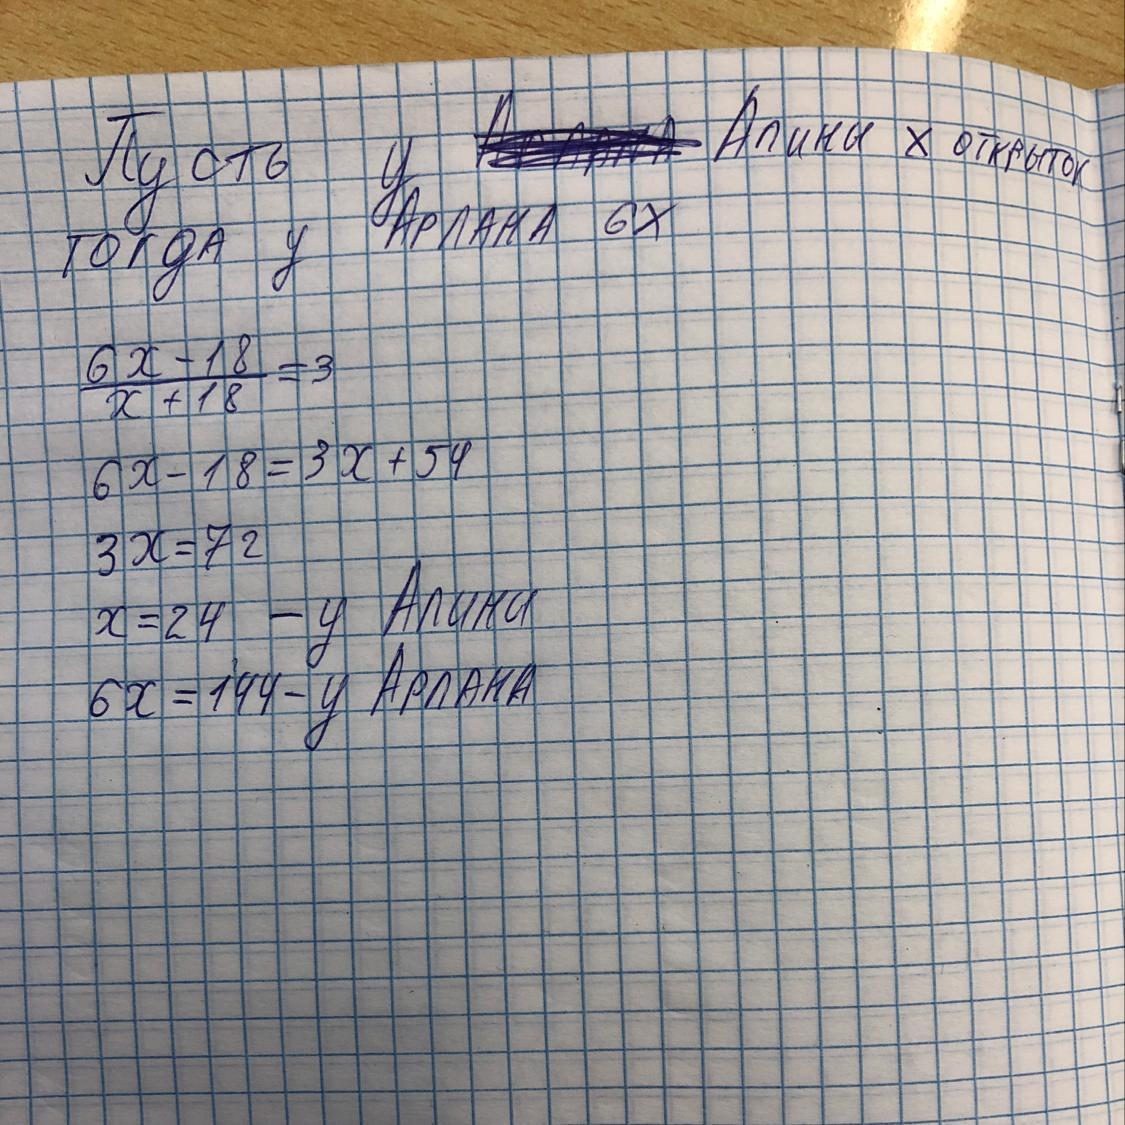 Пусть у Алины х открыток
тогда у Арлана 6х
6х-18
х+18
=3
6х-18=3х+54
3х=72
х=24 - у Алины
6х=144-у Арлана